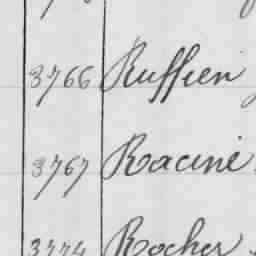 3766 Ruffien
3767 Racine
3774 Rocher